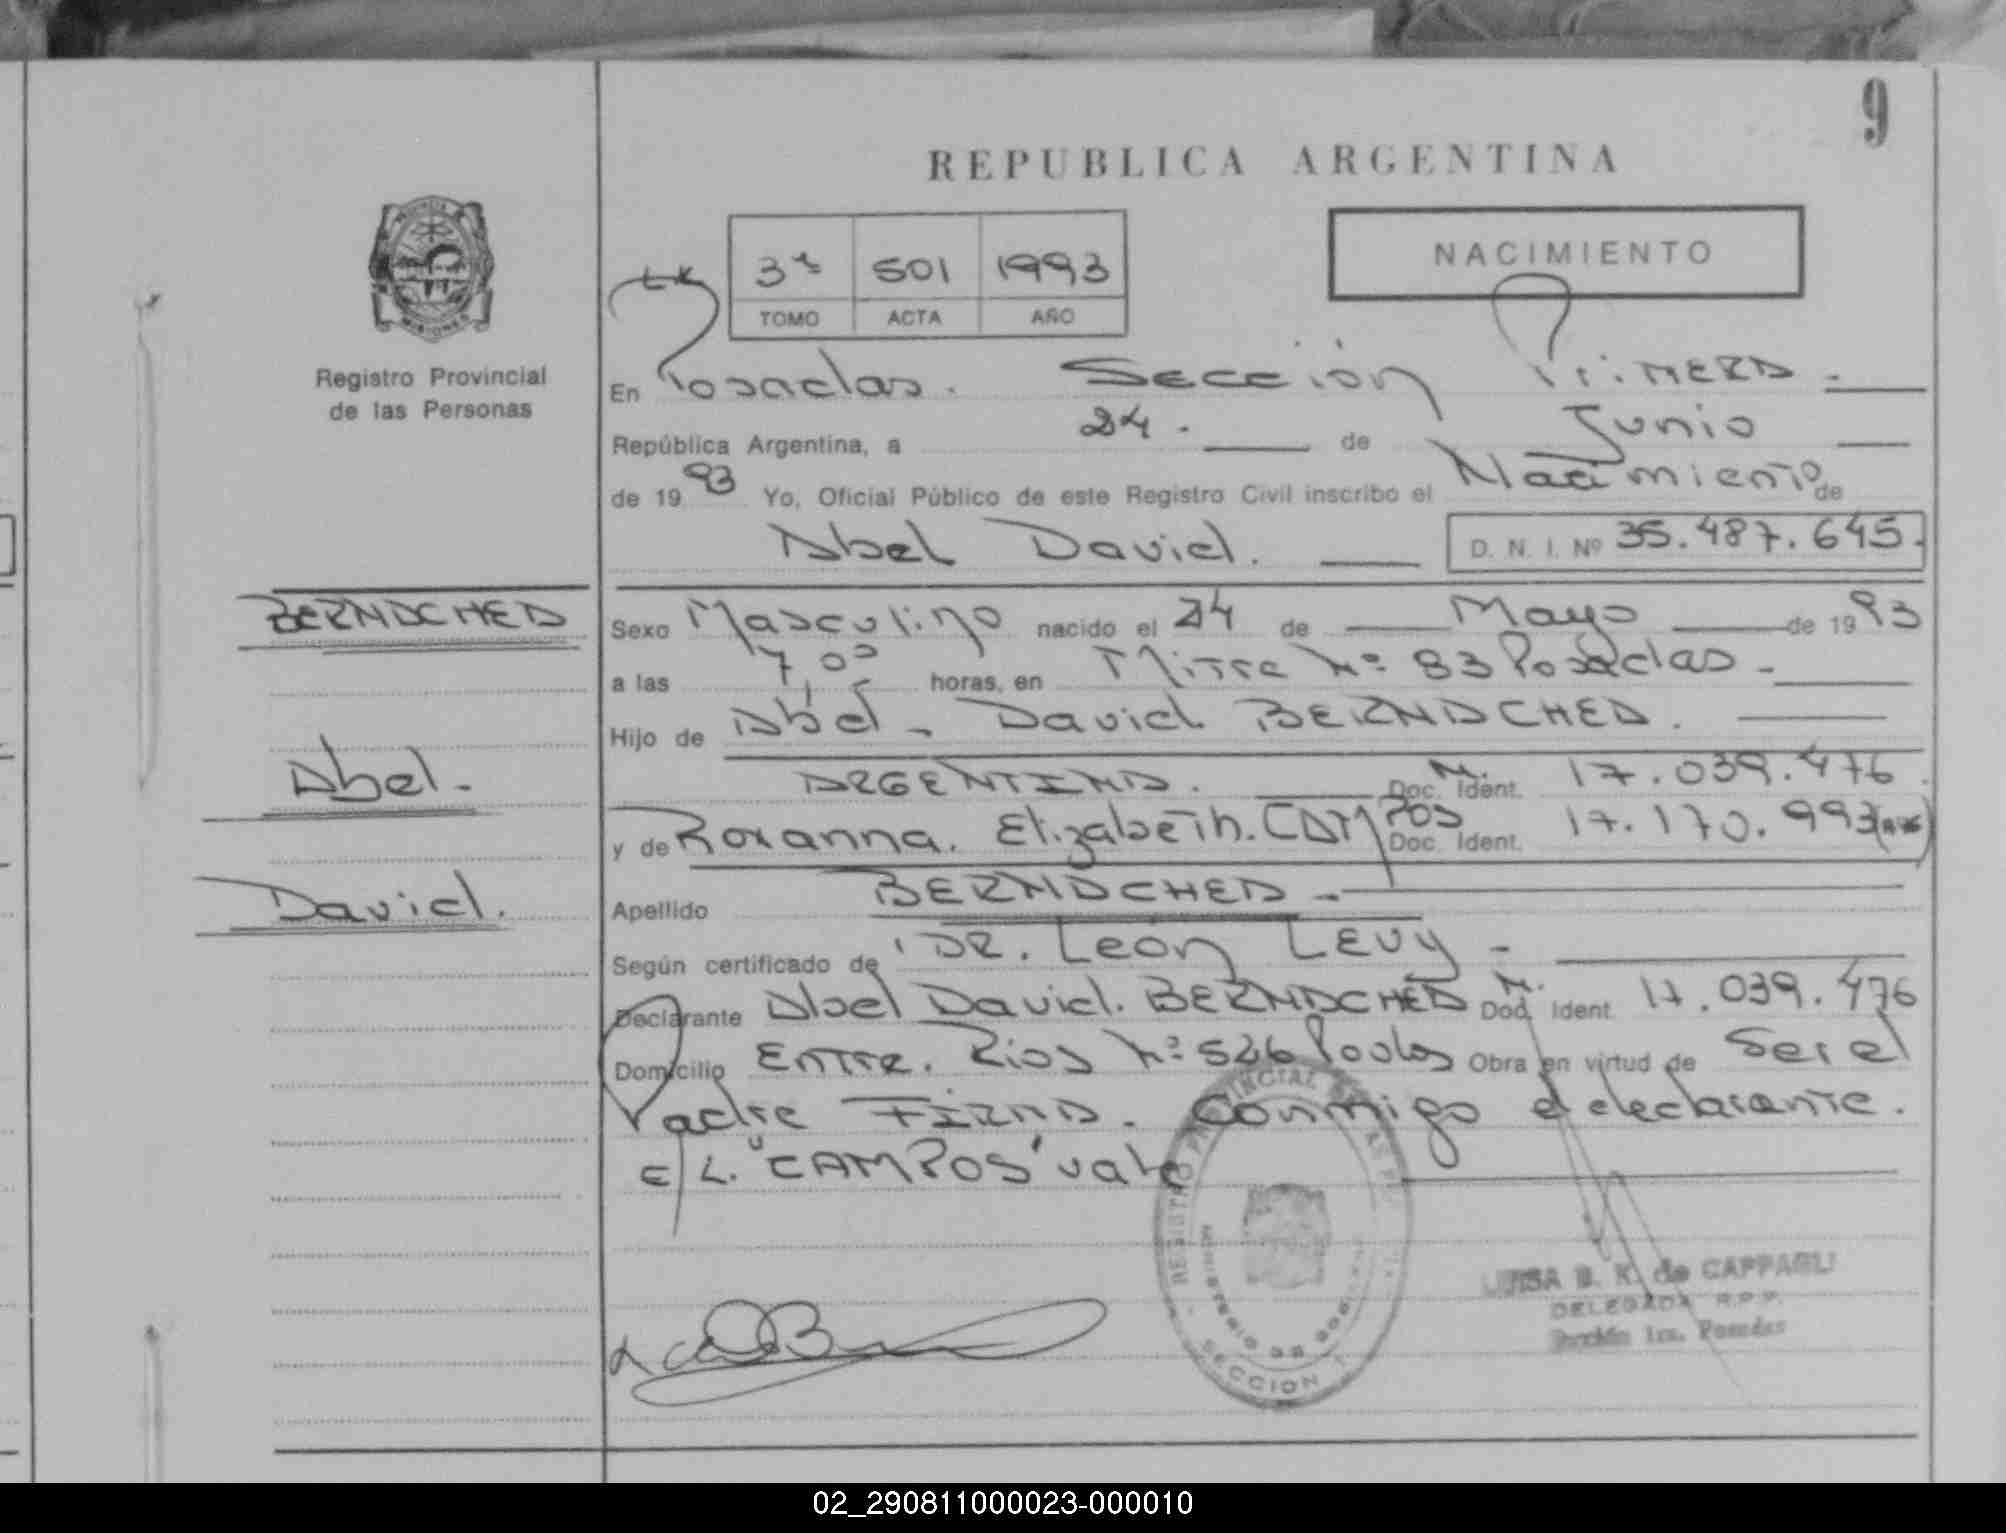 9
REPUBLICA ARGENTINA
NACIMIENTO
3º 501 1993
TOMO ACTA AÑO
PROVINCIA DE
MISIONES
Registro Provincial
de las Personas
En Posadas. Sección Primera.
República Argentina, a 24. de Junio
de 1993 Yo, Oficial Público de este Registro Civil inscribo el Nacimiento de
Abel David. D. N. I. Nº 35.487.645.
BERNACHEA
Abel.
David.
Sexo Masculino nacido el 24 de Mayo de 1993
a las 7,00 horas, en Mitre Nº 83 Posadas.
Hijo de Abel David BERNACHEA.
ARGENTINA. Doc. Ident. 17.039.476.
y de Roxanna. Elizabeth. CAMPOS Doc. Ident. 17.170.993
Apellido BERNACHEA
Según certificado de DR. León LEVY
Declarante Abel David. BERNACHEA Doc. Ident. 17.039.476
Domicilio Entre. Rios Nº 526 Obra en virtud de Ser el
Padre FIRMA. Conmigo el declarante.
E/L. "CAMPOS" vale
REGISTRO PROVINCIAL DE LAS PER
SECCION 1
LUISA B. K. de CAPPAGLI
DELEGADA R.P.P.
Sección 1ra. Posadas
02_290811000023-000010